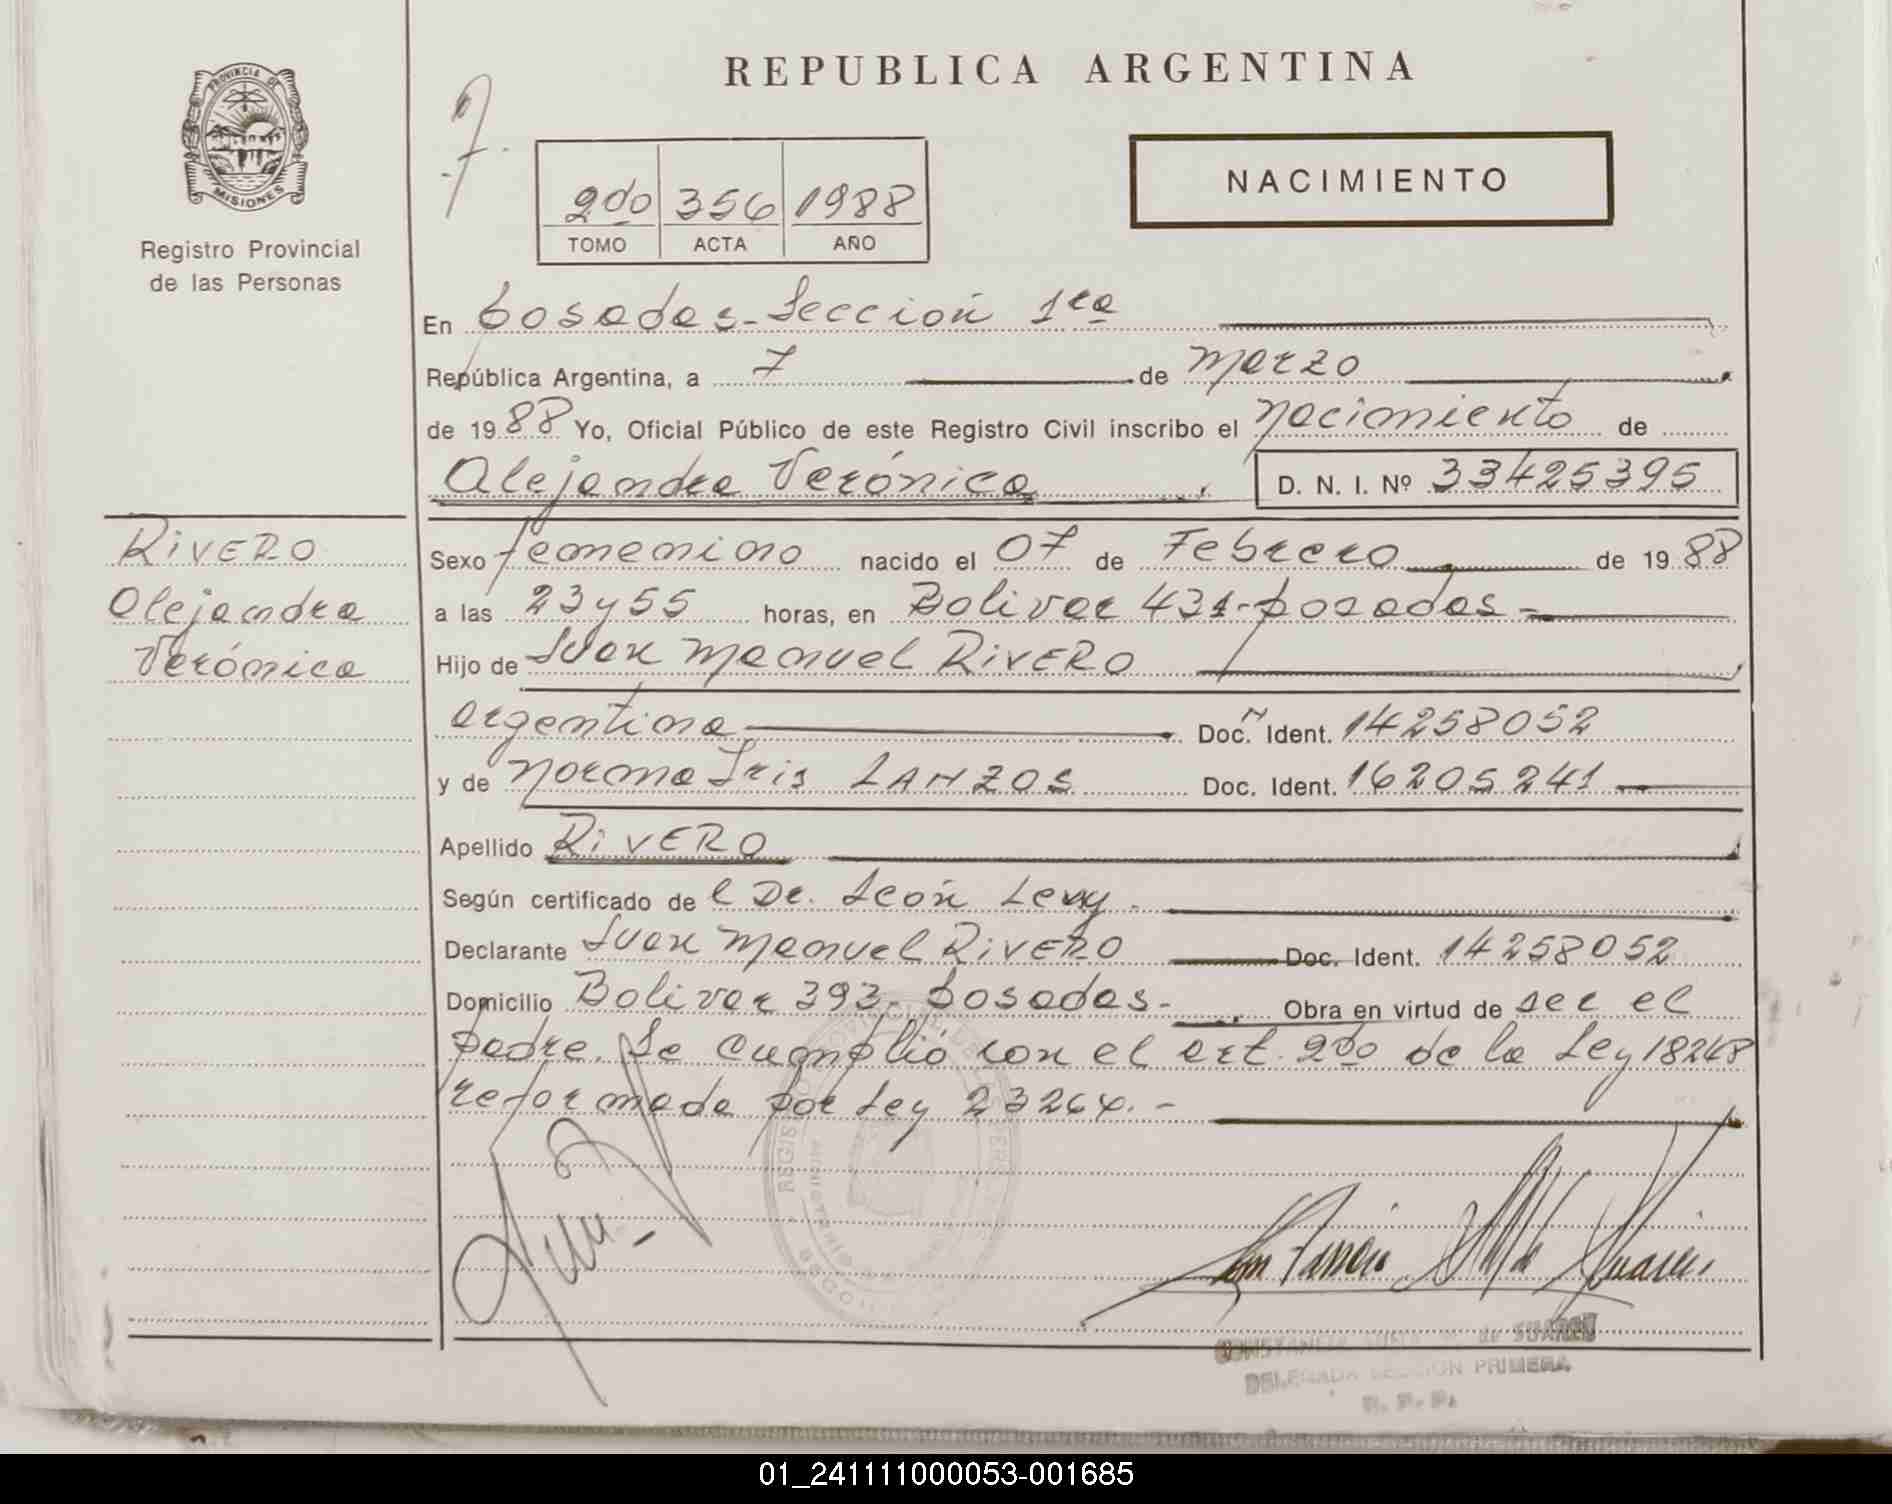 REPUBLICA ARGENTINA
PROVINCIA DE
MISIONES
Registro Provincial
de las Personas
7
2do 356 1988
TOMO ACTA AÑO
NACIMIENTO
En Posadas - Sección 1ra
República Argentina, a 7 de Marzo
de 1988 Yo, Oficial Público de este Registro Civil inscribo el nacimiento de
Alejandra Verónica D. N. I. Nº 33425395
RIVERO
Alejandra
Verónica
Sexo femenino nacido el 07 de Febrero de 1988
a las 23 y 55 horas, en Bolivar 431 - Posadas -
Hijo de Juan Manuel RIVERO
argentino Doc. Ident. 14258052
y de Norma Iris LANZOS Doc. Ident. 16205241
Apellido RIVERO
Según certificado de l Dr. León Levy.
Declarante Juan Manuel RIVERO Doc. Ident. 14258052
Domicilio Bolivar 393 - Posadas - Obra en virtud de ser el
padre. Se cumplió con el art. 2do de la Ley 18248
reformada por Ley 23264. -
REGISTRO
CONSTANCIA de SUAREZ
DELEGADA SECCION PRIMERA
R. P. P.
01_241111000053-001685